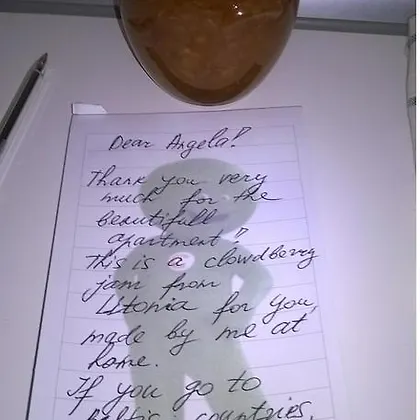 Dear Angela!
Thank you very
much for the
beautifull
apartment!
This is a clowdberry
jam from
Litonia for you,
made by me at
home.
If you go to
Baltic countries